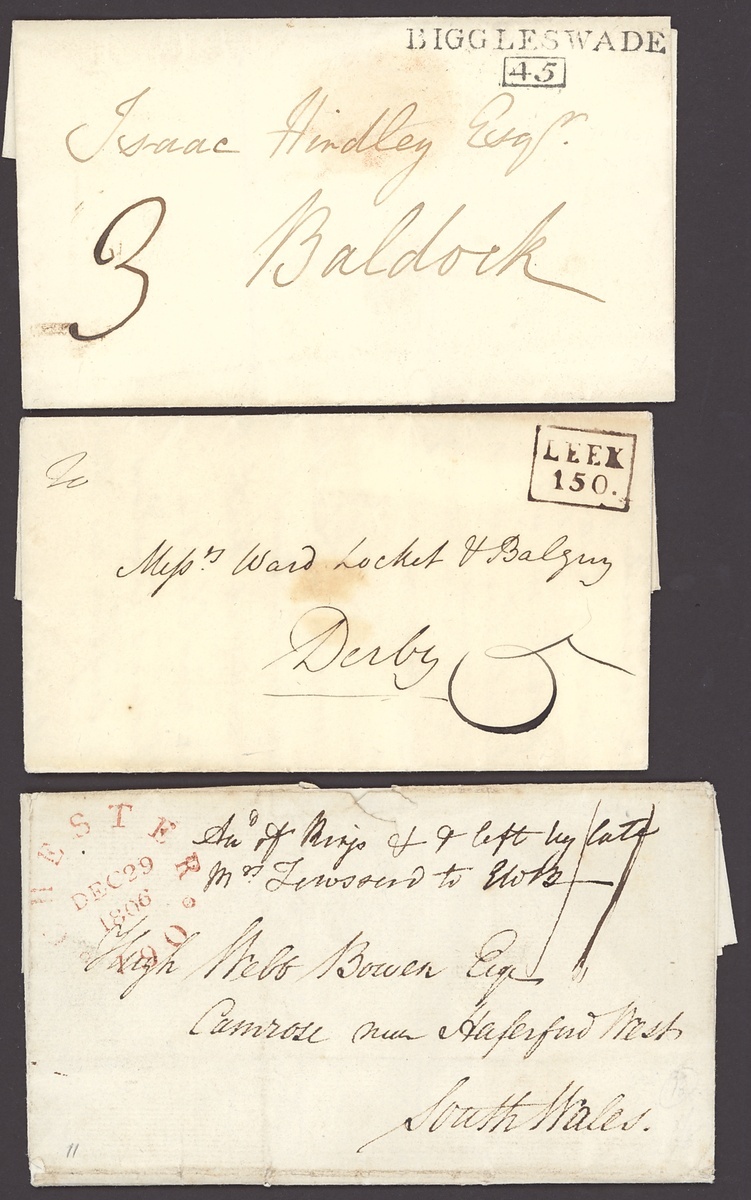 BIGGLESWADE
45
Isaac Hindley Esqr.
3 Baldock
LEEK
150.
To
Messrs Ward Locket & Balguy
Derby
CHESTER
DEC 29
1806
190
of Rings & left by late
Mrs to EWB
11
Hugh Webb Bowen Esqr
Camrose near Haferford West
South Wales.
11